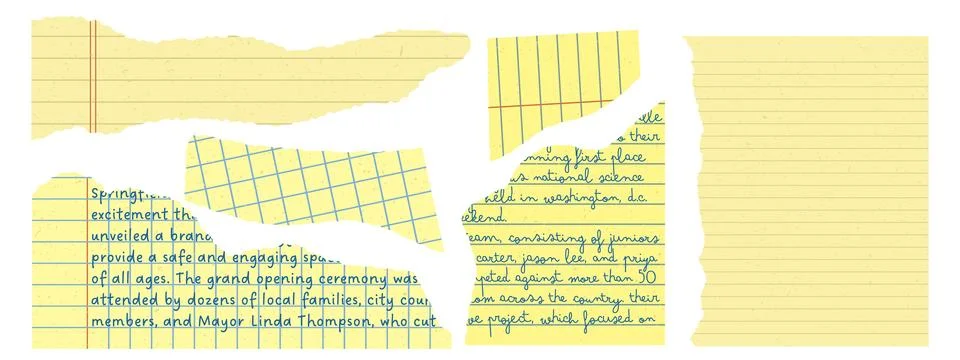 excitement
unveiled a
provide a safe and engaging
of all ages. The grand opening ceremony was
attended by dozens of local families, city
members, and Mayor Linda Thompson, who cut
their
first place
national science
held in washington, d.c.
consisting of juniors
carter, jason lee, and priya
against more than 50
across the country. their
project, which focused on